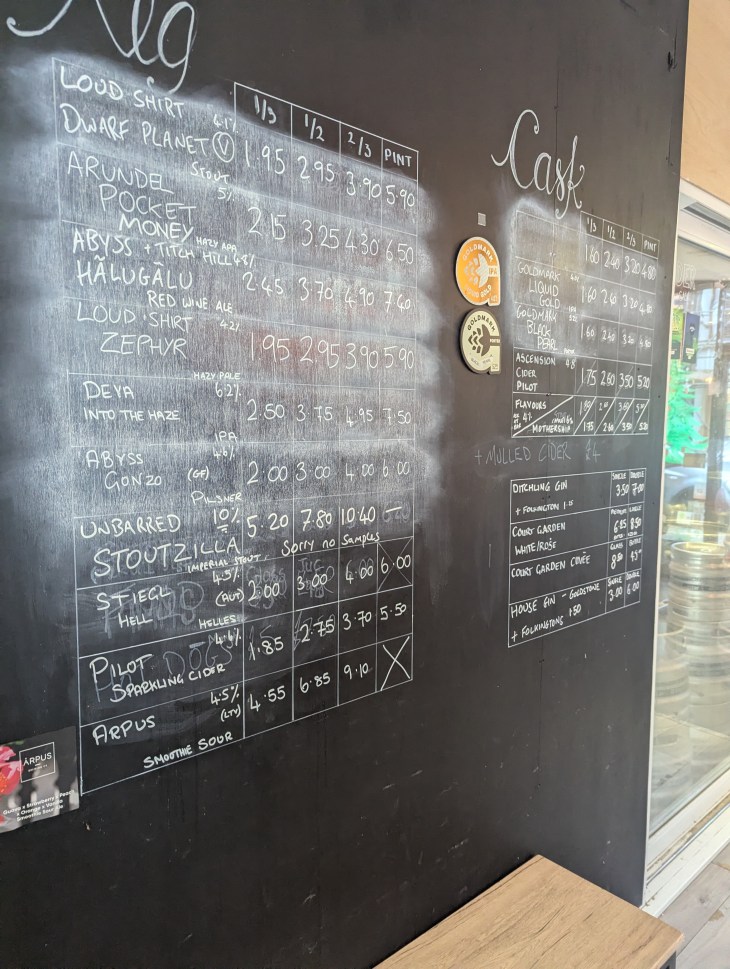 Keg
1/3 1/2 2/3 PINT
LOUD SHIRT 4.1%
DWARF PLANET V 1.95 2.95 3.90 5.90
STOUT
ARUNDEL 5%
POCKET
MONEY 2.15 3.25 4.30 6.50
HAZY APA
ABYSS + TITCH HILL 4.8%
HÃLUGÂLU 2.45 3.70 4.90 7.40
RED WINE ALE
LOUD SHIRT 4.2%
ZEPHYR 1.95 2.95 3.90 5.90
HAZY PALE
DEYA 6.2%
INTO THE HAZE 2.50 3.75 4.95 7.50
IPA
ABYSS 4.6%
GONZO (GF) 2.00 3.00 4.00 6.00
PILSNER
UNBARRED 10% 5.20 7.80 10.40 —
STOUTZILLA
IMPERIAL STOUT. SORRY NO SAMPLES
STIEGL 4.5%
HELL (AUT) 2.00 3.00 4.00 6.00
HELLES
PILOT 4.4% 1.85 2.75 3.70 5.50
SPARKLING CIDER
ARPUS 4.5% (LTV) 4.55 6.85 9.10 X
SMOOTHIE SOUR
ĀRPUS
Cask
1/3 1/2 2/3 PINT
1.60 2.40 3.20 4.80
GOLDMARK
LIQUID
GOLD 1.60 2.40 3.20 4.80
GOLDMARK
BLACK
PEARL 1.60 2.40 3.20 4.80
ASCENSION 4.8
CIDER
PILOT 1.75 2.60 3.50 5.20
FLAVOURS
MOTHERSHIP 1.75 2.60 3.50 5.20
+ MULLED CIDER £4
GOLDMARK
IPA
GOLDMARK
SINGLE DOUBLE
DITCHLING GIN 3.50 7.00
+ FOLKINGTON
COURT GARDEN
WHITE/ROSÉ 6.25 8.50
COURT GARDEN CUVÉE
SINGLE DOUBLE
HOUSE GIN - GOLDSTONE 3.00 6.00
+ FOLKINGTONS 1.50